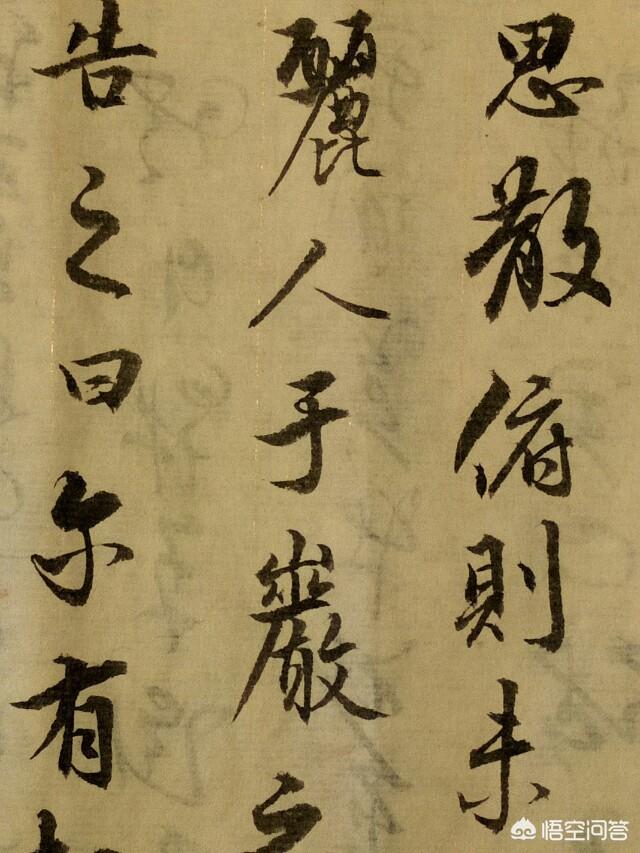 思散俯則未
麗人于巖之
告之曰尔有
悟空问答